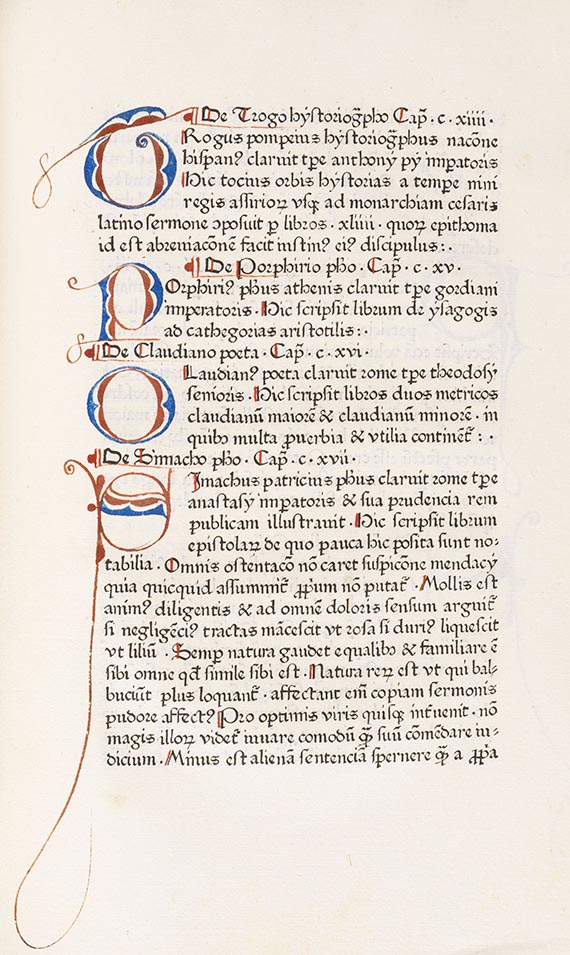 De Trogo hystoriog̃pho Cap̃ · c · xiiii ·
TRogus pompeius hystoriog̃phus nacōne
hispanꝰ claruit tp̄e anthonÿ pÿ imp̱atoris
Hic tocius orbis hystorias a temp̱e nini
regis assirioꝝ vsqꝫ ad monarchiam cesaris
latino sermone ↄposuit p̱ libros · xliiii · quoꝝ epithoma
id est abreuiacōnē facit iustinꝰ eiꝰ discipulus : ·
De Porphirio ph̄o · Cap̃ · c · xv ·
POrphiriꝰ ph̄us athenis claruit tp̄e gordiani
imp̱atoris · Hic scripsit librum de ysagogis
ad cathegorias aristotilis : ·
De Claudiano poeta · Cap̃ · c · xvi ·
CLaudianꝰ poeta claruit rome tp̄e theodosÿ
senioris · Hic scripsit libros duos metricos
claudianū maiorē & claudianū minorē · in
quibꝰ multa ꝓuerbia & vtilia continēt᷑ : ·
De Simacho ph̄o · Cap̃ · c · xvii ·
SImachus patricius ph̄us claruit rome tp̄e
anastasÿ imp̱atoris & sua prudencia rem
publicam illustrauit · Hic scripsit librum
epistolaꝝ de quo pauca hic posita sunt no-
tabilia · Omnis ostentacō nō caret suspicōne mendacÿ
quia quicquid assummit᷑ ꝓp̱um nō putat᷑ · Mollis est
animꝰ diligentis & ad omnē doloris sensum arguit᷑
si negligēciꝰ tractas mācescit vt rosa si duriꝰ liquescit
vt liliū · Semp̱ natura gaudet equalibꝰ & familiare ē
sibi omne qd̄ simile sibi est · Natura reꝝ est vt qui bal-
buciūt plus loquant᷑ · affectant em̄ copiam sermonis
pudore affectꝰ Pro optimis viris quisqꝫ int̄uenit · nō
magis illoꝝ videt᷑ iuuare comodū qꝫ̃ suū cōmēdare iu-
dicium · Minus est alienā sentenciā sp̱nere qꝫ̃ a ꝓp̱a